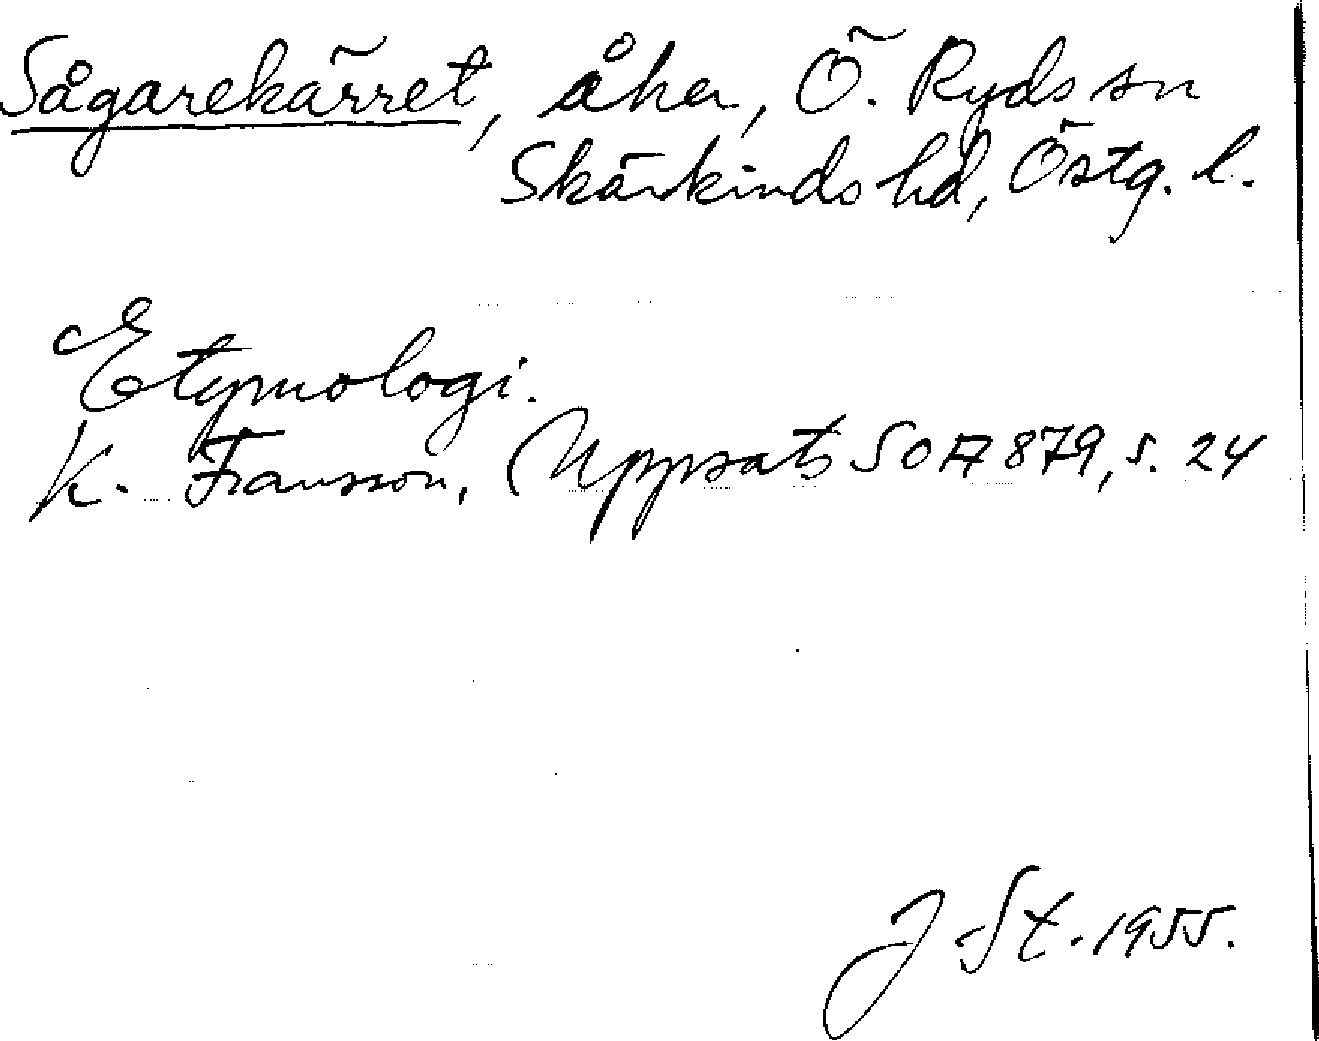 Sågarekärret, åker, Ö. Ryds sn
Skärkinds hd, Östg. l.
Etymologi.
K. Fransson, Uppsats SOA 879, s. 24
J St. 1955.